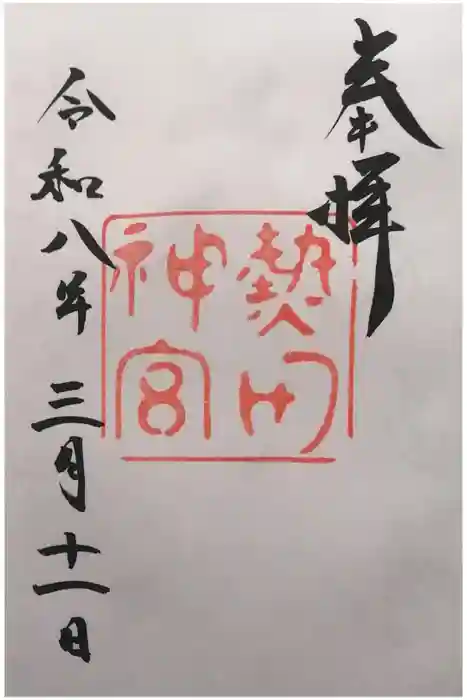 奉拝
熱田
神宮
令和八年 三月 十一日